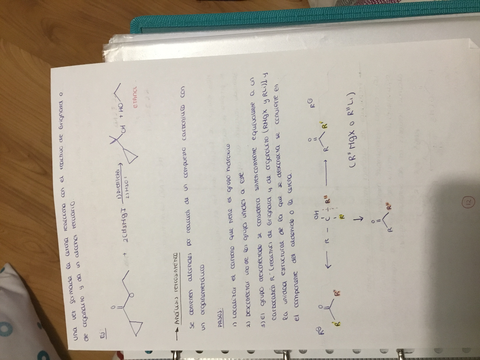 una vez formada la cetona reacciona con el reactivo de Grignard o
de organolitio y da un alcohol terciario.
Ej:
O
+ 2CH3MgI
OH
+ HO
→ Análisis retrosintético
se obtienen alcoholes por reacción de un compuesto carbonílico con
un organometálico
PASOS:
1) Localizar el carbono que tiene el grupo hidroxilo
2) desconectar uno de los grupos unidos a este
3) El grupo desconectado se considera sintéticamente equivalente a un
carbanión R⁻ (reactivo de Grignard y de organolitio (RMgX y RLi)) y
la unidad estructural de la que se desconecta se convierte en
el componente del aldehído o la cetona
OH
R - C - R''
R'
(R''MgX o R''Li)